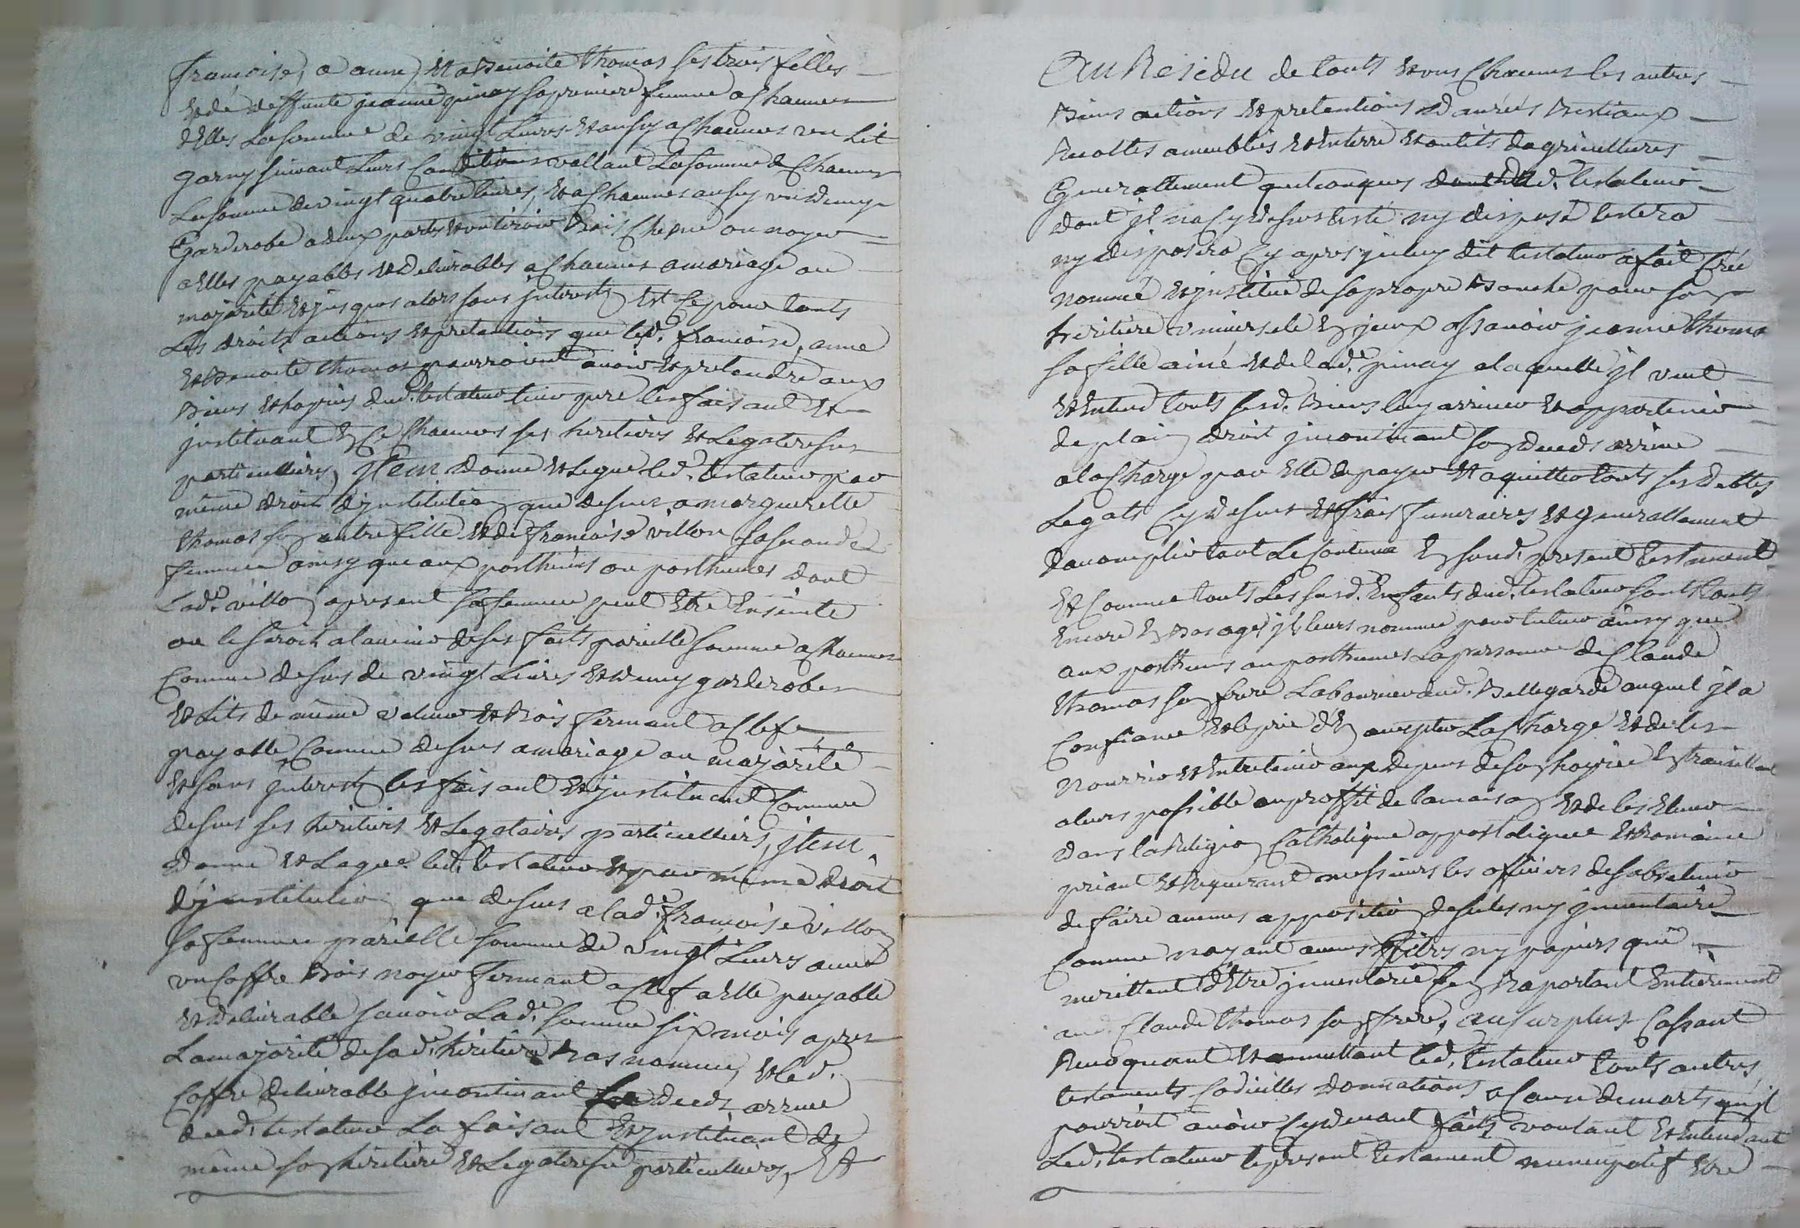 françoise, a anne, Et a Benoite thomas ses trois filles
Et de deffunte jeanne pinay sa premiere femme a chacune
d'Elles La somme de vingt Livres Et aussy a chacune un Lit
garny suivant Leurs Conditions vallant La somme de Chacun
La somme de vingt quatre livres, Et a Chacune aussy un demy
garderobe a deux portes Bois Chesne ou noyer
a Elles payables Et delivrables a Chacune a mariage ou
majorité Et jusques alors sans jnterest Et Ce pour touts
Les droits actions Et pretentions que lesd. francoise, anne
Et Benoite thomas pourroient avoir Et pretendre aux
Biens Et hoyries dud. testateur leur pere les faisant Et
jnstituant En Ce Chacune ses heritieres Et Legateresses
particullieres, jtem donne Et Legue led. testateur par
même droit d'jnstitution que dessus a margueritte
thomas son autre fille Et de françoise villon sa seconde
femme ainsy que aux posthumes ou posthumes dont
Lad.e villon a present sa femme peut Etre Enseinte
ou le seroit a lavenir de ses faits pareille somme a Chacun
Comme dessus de vingt Livres Et demy garderobe
Et Lits de même valeur Et Bois fermant a Clef
payable Comme dessus a mariage ou majorité
Et sans jnterest les faisant Et jnstituant Comme
dessus ses heritiers Et Legataires particulliers, jtem
Donne Et Legue led. testateur Et par même droit
d'jnstitution que dessus a lad.e françoise villon
sa femme pareille somme de vingt Livres avec
un Coffre Bois noyer fermant a Clef a Elle payable
Et delivrable sçavoir Lad.e somme six mois apres
La majorité de sad. heritiere Bas nommée, Et led.
Coffre delivrable jncontinant deceds arrivé
dud. testateur La faisant Et jnstituant de
même son heritiere Et Legateresse particulliere, Et
Au Residu de touts Et uns Chacuns les autres
Biens actions Et pretentions Danrées Bestiaux
Recoltes ameublis Et Enterre Et outils dagricultures
Generallement quelconques led. testateur
dont jl na Cy dessus testé ny disposé testera
ny disposera Cy apres jceluy dit testateur a fait Créé
nommé Et jnstitué de sa propre Bouche pour son
heritiere universele En jceux assavoir jeanne thomas
sa fille ainé Et de lad.e pinay a laquelle jl veut
Et Entend touts sesd. Biens luy arriver Et appartenir
de plain droit jncontinant son deceds arrivé
a la Charge par Elle de payer Et aquitter touts ses Dettes
Legats Cy dessus Et frais funeraires Et generallement
d'accomplir tout Le Contenu En sond. present testament
Et Comme touts Les susd. Enfants dud. testateur sont touts
Encore En Bas age jl leurs nomme pour tuteur ainsy que
aux posthumes ou posthumes La personne de Claude
thomas son frere Laboureur aud. Bellegarde auquel jl a
Confiance Et le prie d'En accepter La Charge Et de les
Nourrir Et Entretenir aux depens de son hoyrie En travaillant
a leurs possible au proffit de la maison Et de les Elever
dans la Religion Catholique appostolique Et Romaine
priant Et Requerant messieurs les officiers
de faire aucunes apposition de scelés ny jnventaire
Comme n'ayant aucuns titres ny papiers qui
merittent d'Etre jnventoriés sen Raportant Entierement
aud. Claude thomas son frere, au surplus Cassant
Revoquant Et annullant led. testateur touts autres
testaments Codicilles donnations a Cause de morts qu'jl
pourroit avoir Cy devant faits voulant Et Entendant
Led. testateur le present testament nuncupatif Etre